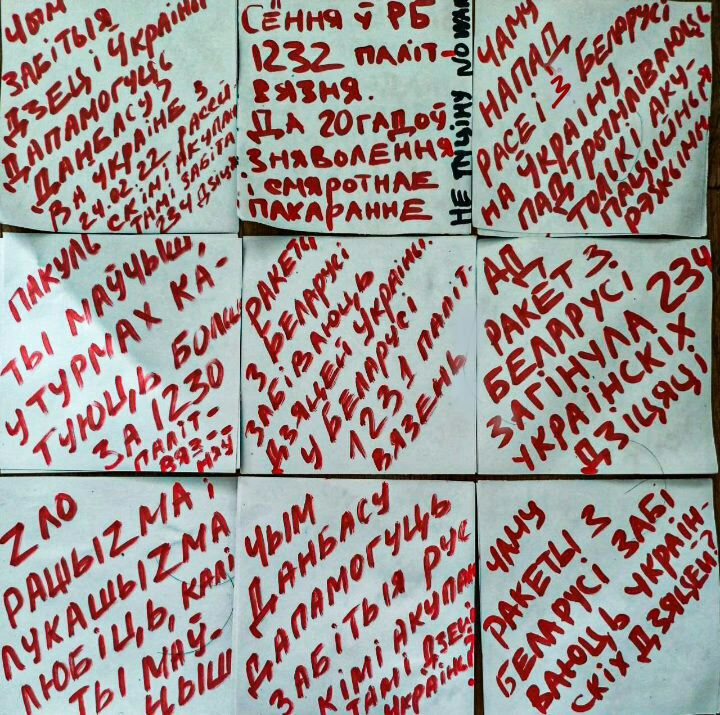 ЧЫМ
ЗАБІТЫЯ
ДЗЕЦІ УКРАІНЫ
ДАПАМОГУЦЬ
ДАНБАСУ?
ВА УКРАІНЕ З
24.02.22 РАСЕЙ-
СКІМІ АКУПАН
ТАМІ ЗАБІТА
234 ДЗІЦЯ
СЁННЯ Ў РБ
1232 ПАЛІТ-
ВЯЗНЯ.
ДА 20 ГАДОЎ
ЗНЯВОЛЕННЯ
І СМЯРОТНАЕ
ПАКАРАННЕ
НЕ ПУЦІНУ NO WAR
ЧАМУ
НАПАД
РАСЕІ З БЕЛАРУСІ
НА ЎКРАІНУ
ПАДТРЫМЛІВАЮЦЬ
ТОЛЬКІ АКУ-
ПАЦЫЙНЫЯ
РЭЖЫМЫ
ПАКУЛЬ
ТЫ МАЎЧЫШ,
У ТУРМАХ КА-
ТУЮЦЬ БОЛЬШ
ЗА 1230
ПАЛІТ-
ВЯЗ-
НЯЎ
РАКЕТЫ
З БЕЛАРУСІ
ЗАБІВАЮЦЬ
ДЗЯЦЕЙ УКРАІНЫ.
У БЕЛАРУСІ
1231 ПАЛІТ.
ВЯЗЕНЬ
АД
РАКЕТ З
БЕЛАРУСІ
ЗАГІНУЛА 234
УКРАІНСКІХ
ДЗІЦЯЦІ
ZЛО
РАШЫZМА І
ЛУКАШЫZМА
ЛЮБІЦЬ, КАЛІ
ТЫ МАЎ-
ЧЫШ
ЧЫМ
ДАНБАСУ
ДАПАМОГУЦЬ
ЗАБІТЫЯ РУС
КІМІ АКУПАН
ТАМІ ДЗЕЦІ
УКРАІНЫ
ЧАМУ
РАКЕТЫ З
БЕЛАРУСІ ЗАБІ
ВАЮЦЬ УКРАІН-
СКІХ ДЗЯЦЕЙ?